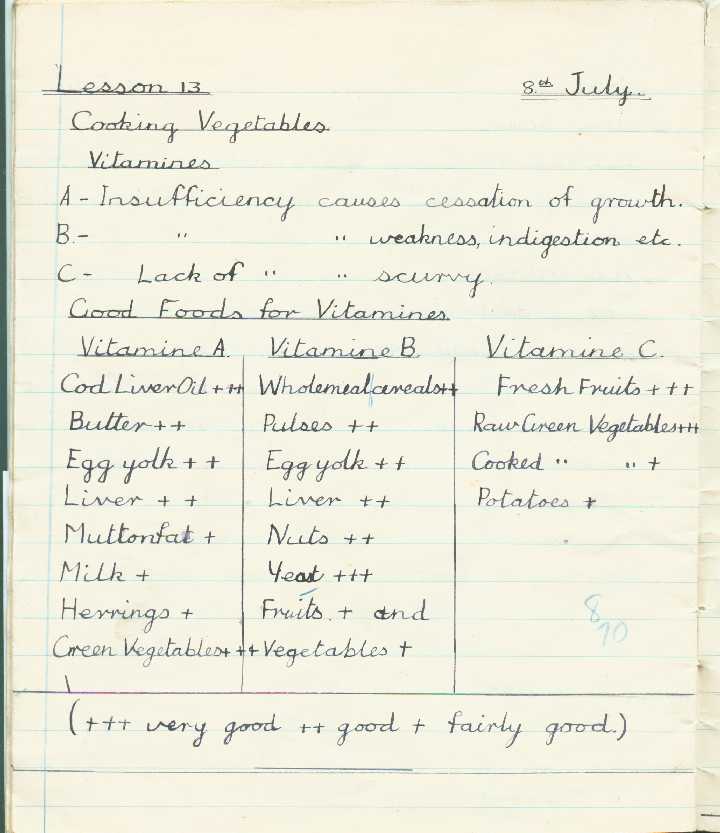 Lesson 13 8th July.
Cooking Vegetables.
Vitamines
A - Insufficiency causes cessation of growth.
B.- " " weakness, indigestion etc.
C - Lack of " " scurvy.
Good Foods for Vitamines
Vitamine A. Vitamine B. Vitamine C.
Cod Liver Oil +++ Wholemeal cereals ++ Fresh Fruits +++
Butter ++ Pulses ++ Raw Green Vegetables +++
Egg yolk ++ Egg yolk ++ Cooked " " +
Liver ++ Liver ++ Potatoes +
Muttonfat + Nuts ++
Milk + Yeast +++
Herrings + Fruits. + and
Green Vegetables +++ Vegetables +
8/10
(+++ very good ++ good + fairly good.)